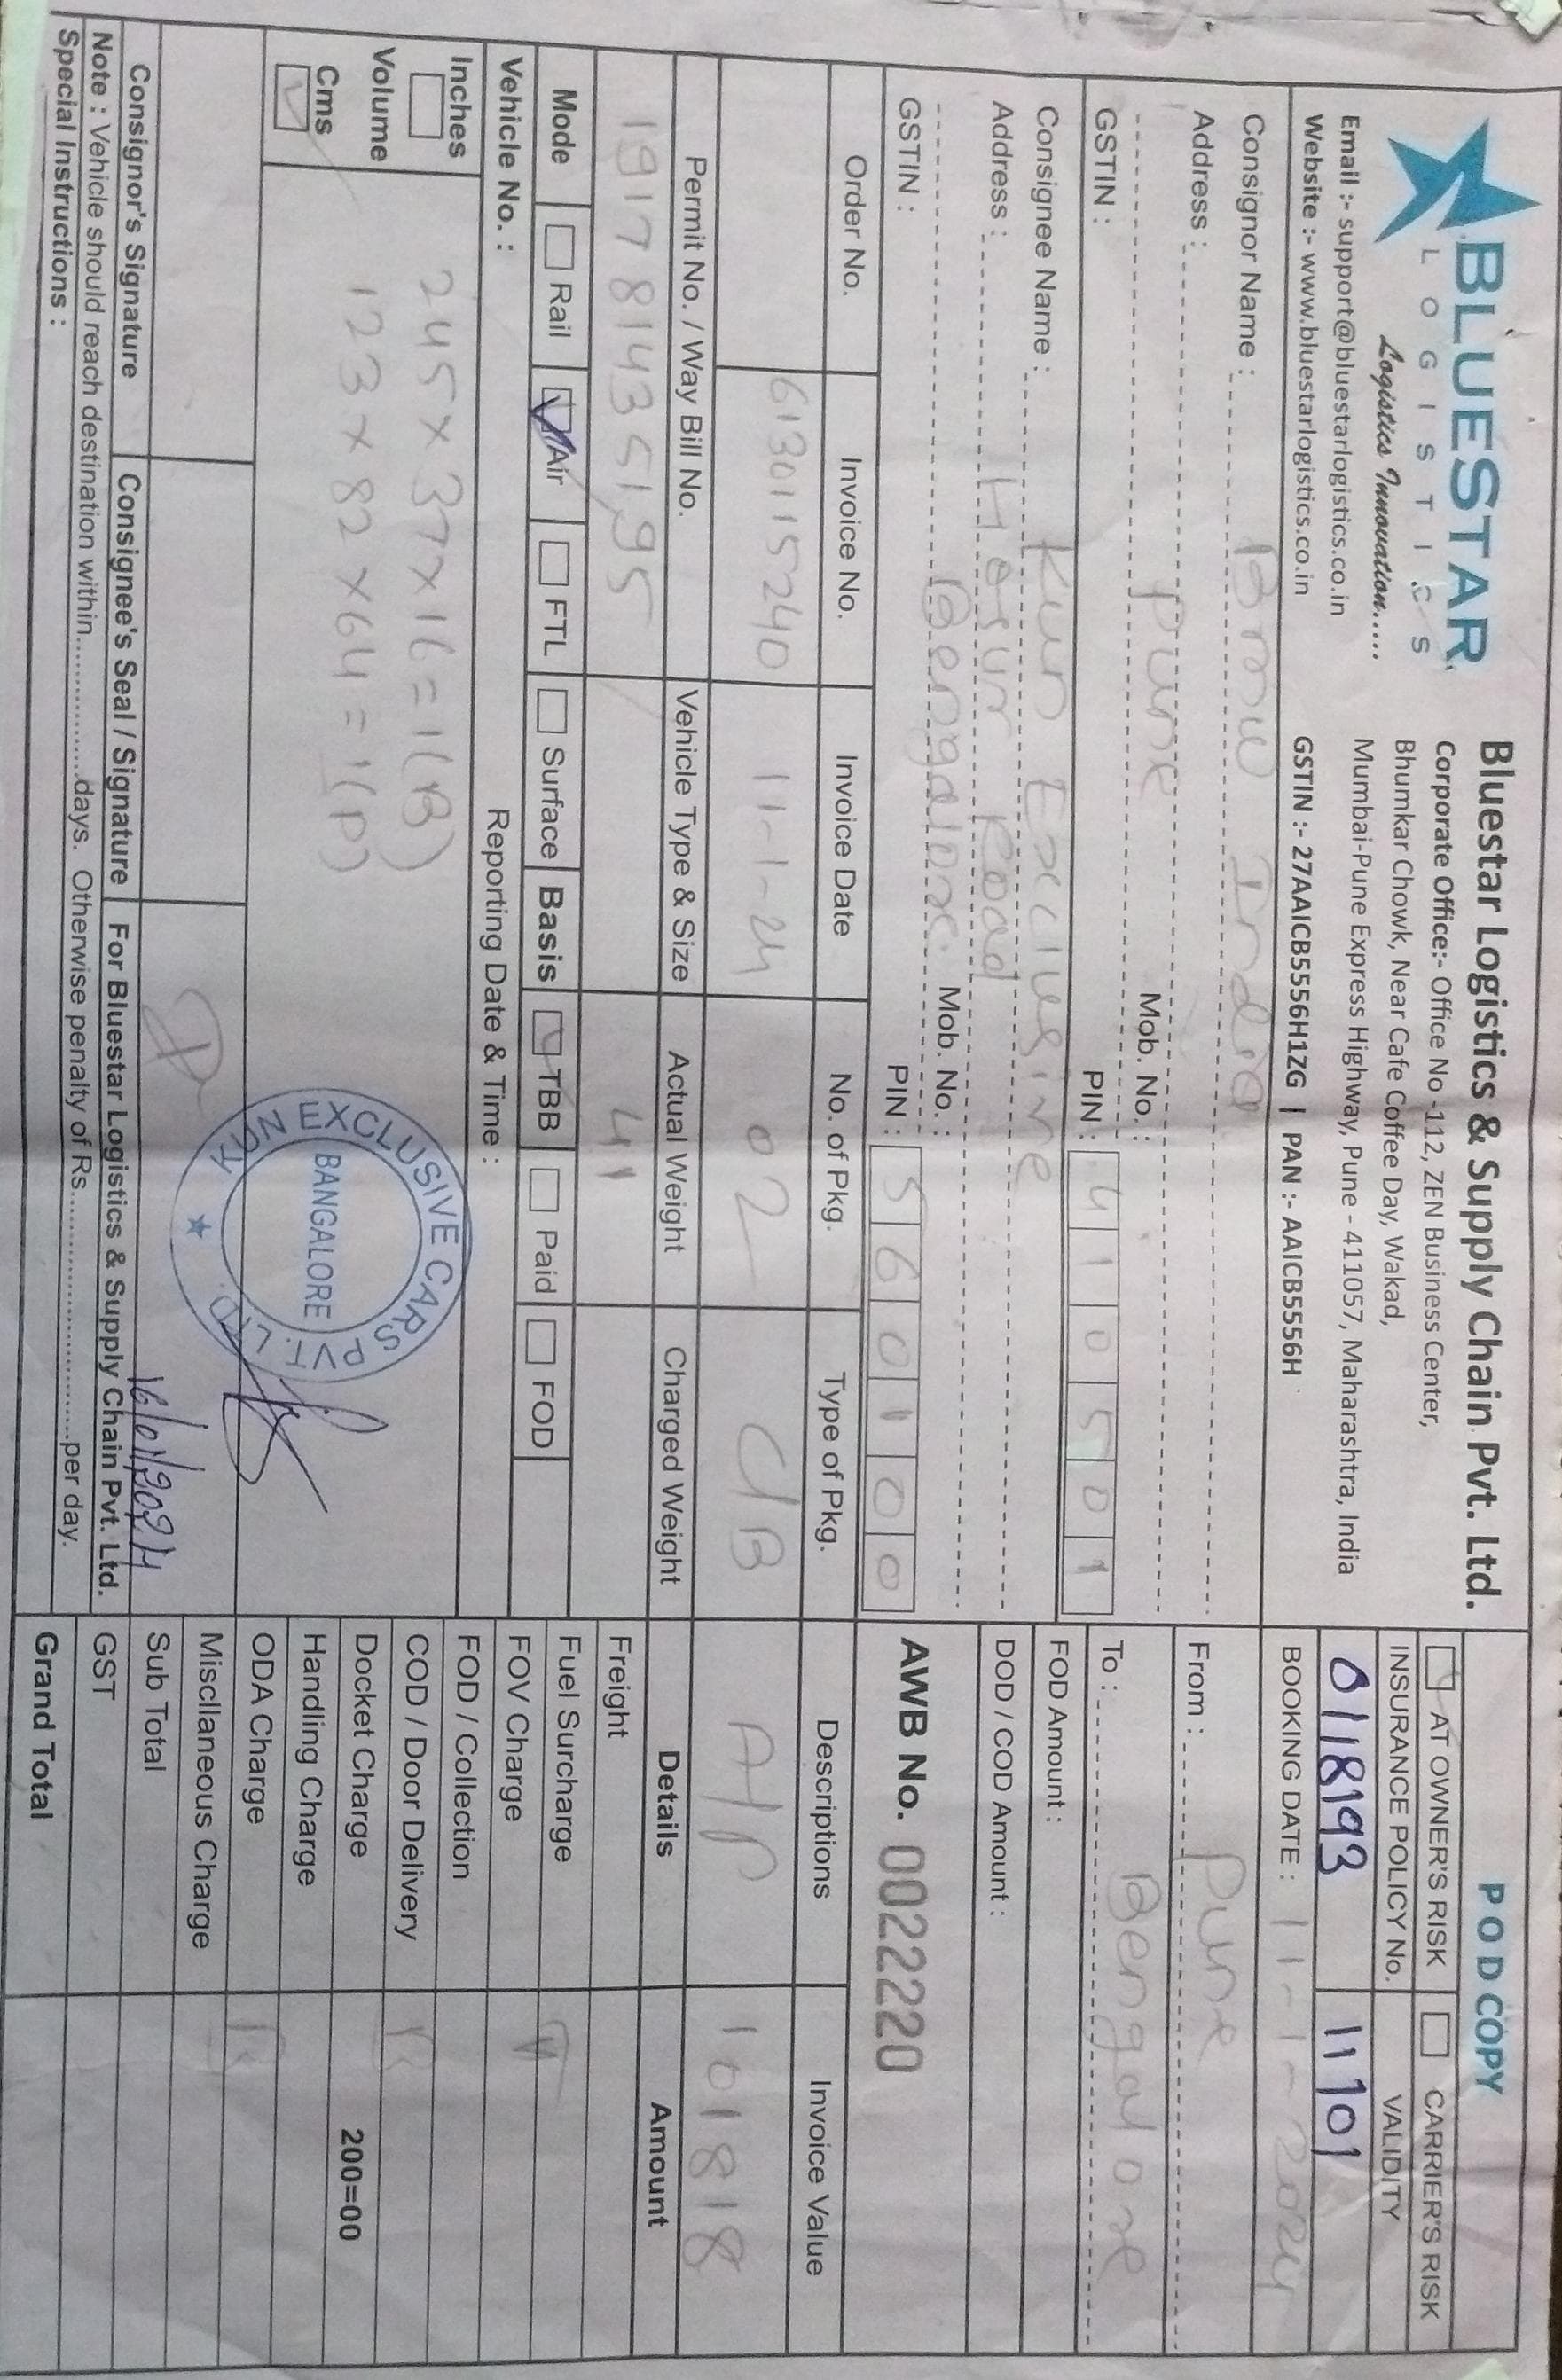 BLUESTAR
LOGISTICS
Logistics Innovation.....
Email :- support@bluestarlogistics.co.in
Website :- www.bluestarlogistics.co.in
Bluestar Logistics & Supply Chain Pvt. Ltd.
Corporate Office:- Office No -112, ZEN Business Center,
Bhumkar Chowk, Near Cafe Coffee Day, Wakad,
Mumbai-Pune Express Highway, Pune - 411057, Maharashtra, India
GSTIN :- 27AAICB5556H1ZG | PAN :- AAICB5556H
POD COPY
AT OWNER'S RISK CARRIER'S RISK
INSURANCE POLICY No. VALIDITY
0118193 11101
BOOKING DATE : 11-1-2024
Consignor Name : Bmw India
Address :
Pune Mob. No. :
GSTIN : PIN : 410501
From : Pune
To : Bengalore
Consignee Name : Kun Exclusive
Address : Hosur Road
Bengalore Mob. No. :
GSTIN : PIN : 560100
FOD Amount :
DOD / COD Amount :
AWB No. 0022220
Order No. Invoice No. Invoice Date No. of Pkg. Type of Pkg. Descriptions Invoice Value
6130115240 11-1-24 02 C/B A/P 101818
Permit No. / Way Bill No. Vehicle Type & Size Actual Weight Charged Weight Details Amount
191781435195 41
Mode Rail Air FTL Surface Basis TBB Paid FOD
Vehicle No. : Reporting Date & Time :
Inches
Volume
Cms
245 x 37 x 16 = 1(B)
123 x 82 x 64 = 1(P)
KUN EXCLUSIVE CARS PVT. LTD.
BANGALORE
16/01/2024
Consignor's Signature Consignee's Seal / Signature For Bluestar Logistics & Supply Chain Pvt. Ltd.
Note : Vehicle should reach destination within.................days. Otherwise penalty of Rs..............................per day.
Special Instructions :
Freight
Fuel Surcharge
FOV Charge
FOD / Collection
COD / Door Delivery
Docket Charge 200=00
Handling Charge
ODA Charge
Miscllaneous Charge
Sub Total
GST
Grand Total